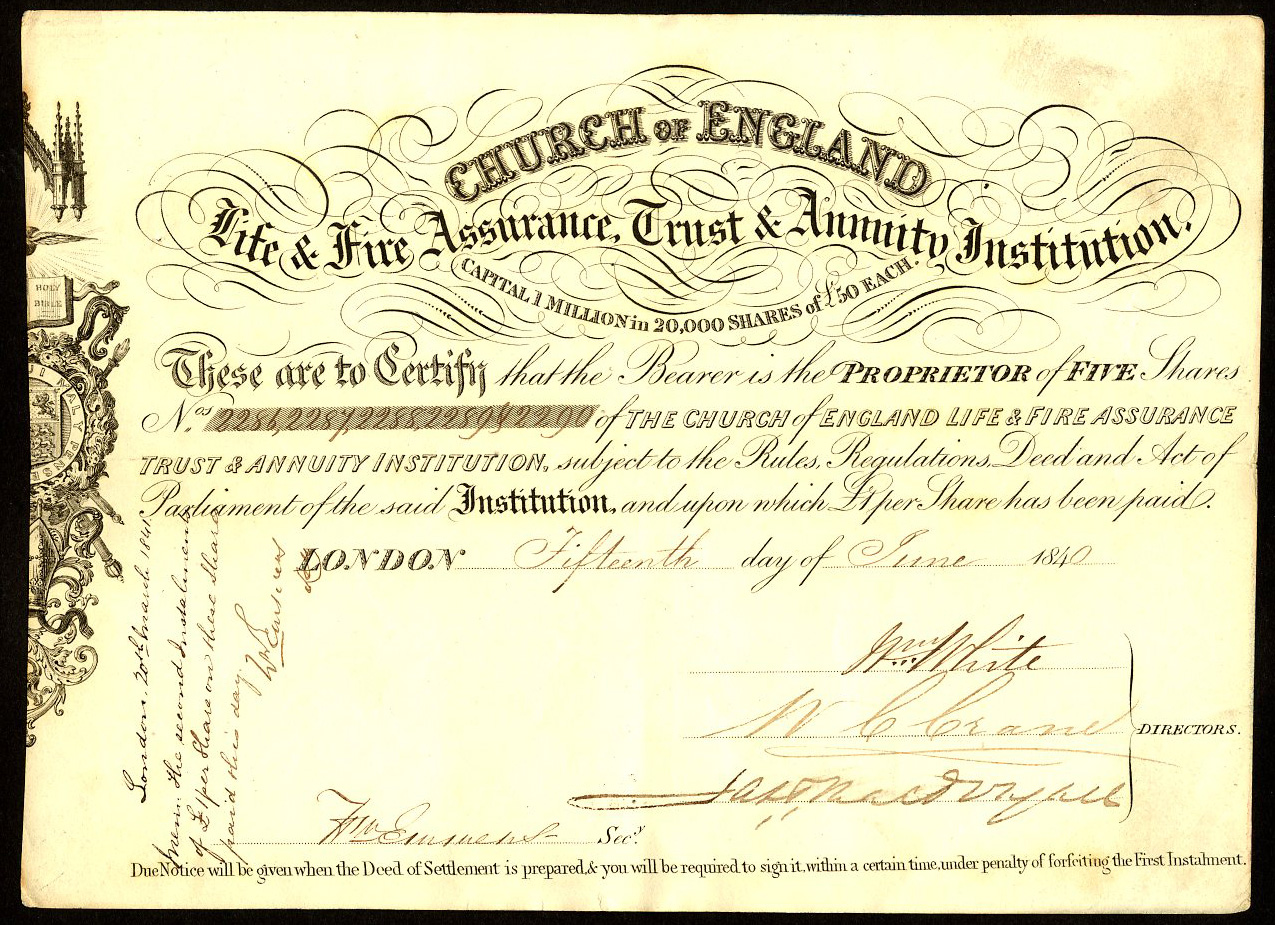 CHURCH OF ENGLAND
Life & Fire Assurance, Trust & Annuity Institution.
CAPITAL 1 MILLION in 20,000 SHARES of £50 EACH.
HOLY
BIBLE
These are to Certify that the Bearer is the PROPRIETOR of FIVE Shares
N.os 2286, 2287, 2288, 2289 & 2290 of THE CHURCH of ENGLAND LIFE & FIRE ASSURANCE
TRUST & ANNUITY INSTITUTION, subject to the Rules, Regulations, Deed and Act of
Parliament of the said Institution, and upon which £1 per Share has been paid.
LONDON Fifteenth day of June 1840
Wm. White
W C Crane
DIRECTORS.
Wm Emmens Secy.
London, 20th March 1841
Mem: the second Instalment
of £1 per Share on these Shares
paid this day
Due Notice will be given when the Deed of Settlement is prepared, & you will be required to sign it, within a certain time, under penalty of forfeiting the First Instalment.